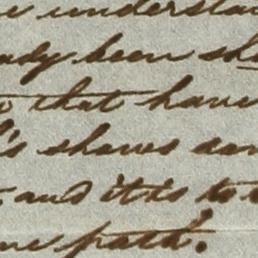 understa
ady been sh
that have
's shews an
and it is to
path!